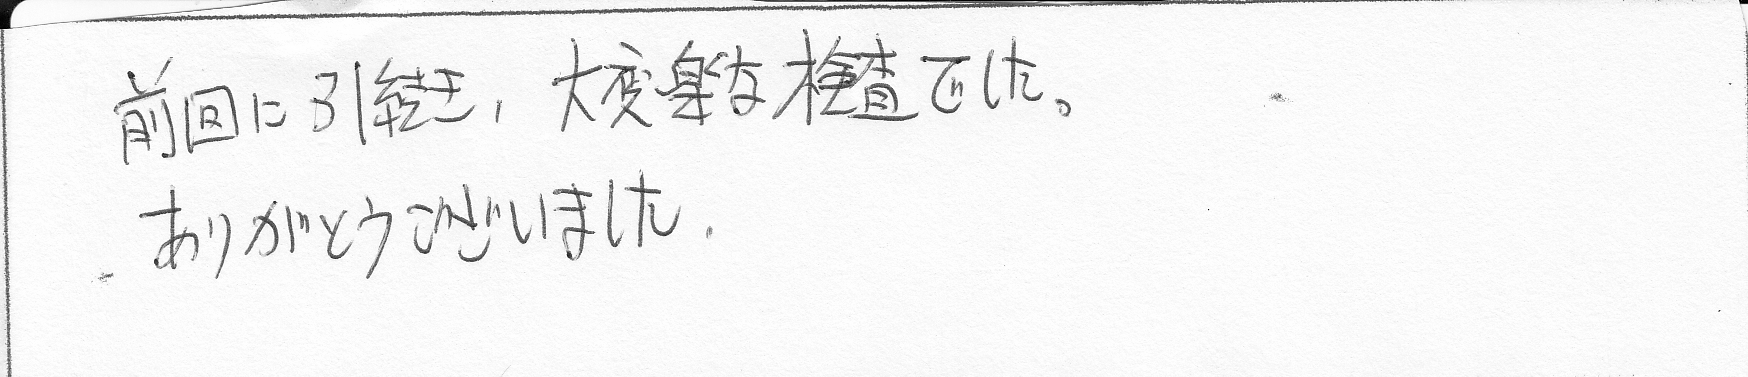 前回に引続き、大変楽な検査でした。
ありがとうございました.